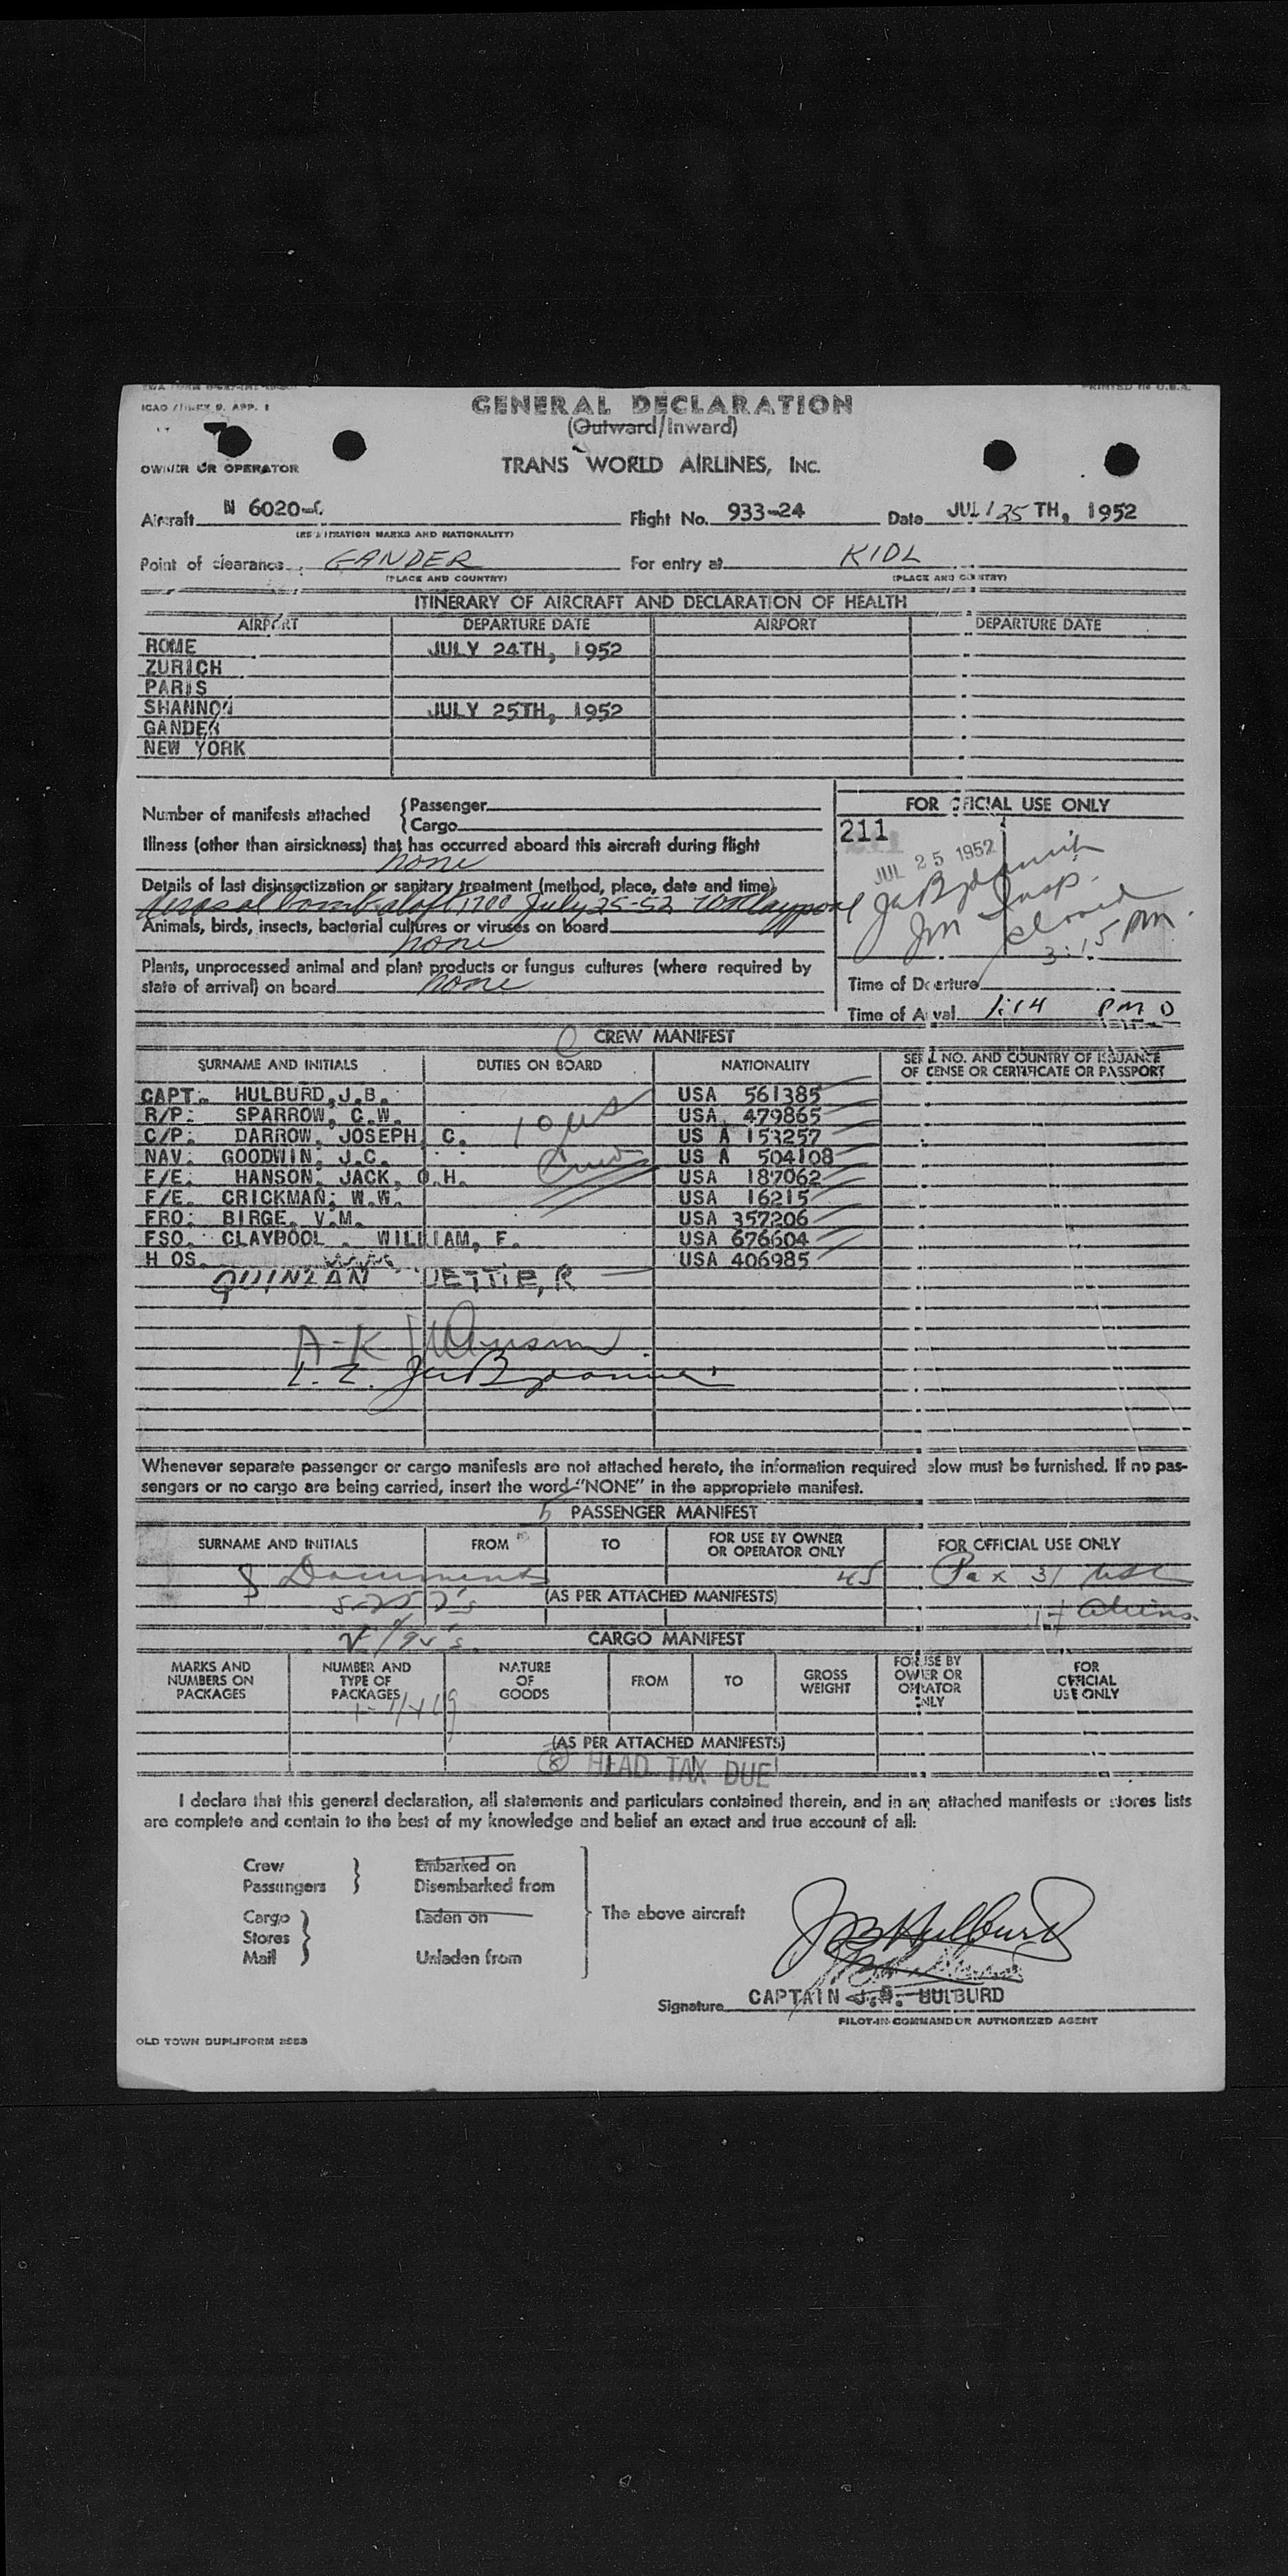 ICAO ANNEX 9, APP. 1
PRINTED IN U.S.A.
GENERAL DECLARATION
(Outward/Inward)
OWNER OR OPERATOR
TRANS WORLD AIRLINES, INC.
Aircraft N 6020-C Flight No. 933-24 Date JULY 25TH, 1952
(REGISTRATION MARKS AND NATIONALITY)
Point of clearance GANDER For entry at KIDL
(PLACE AND COUNTRY) (PLACE AND COUNTRY)
ITINERARY OF AIRCRAFT AND DECLARATION OF HEALTH
AIRPORT DEPARTURE DATE AIRPORT DEPARTURE DATE
ROME JULY 24TH, 1952
ZURICH
PARIS
SHANNON JULY 25TH, 1952
GANDER
NEW YORK
Number of manifests attached { Passenger
Cargo
FOR OFFICIAL USE ONLY
211
JUL 25 1952
Illness (other than airsickness) that has occurred aboard this aircraft during flight
none
Details of last disinsectization or sanitary treatment (method, place, date and time)
aerosol bomb aloft 1700 July 25-52 WF Claypool
Animals, birds, insects, bacterial cultures or viruses on board
none
Imm Insp.
closed
3:15 PM.
Plants, unprocessed animal and plant products or fungus cultures (where required by
state of arrival) on board none
Time of Departure
Time of Arrival 1:14 PM D
CREW MANIFEST
SURNAME AND INITIALS DUTIES ON BOARD NATIONALITY SERIAL NO. AND COUNTRY OF ISSUANCE
OF LICENSE OR CERTIFICATE OR PASSPORT
CAPT. HULBURD, J.B. USA 561385
R/P: SPARROW, C.W. USA 479865
C/P: DARROW, JOSEPH C. US A 153257
NAV: GOODWIN, J.C. US A 504108
F/E. HANSON, JACK, O.H. USA 187062
F/E. CRICKMAN; W.W. USA 16215
FRO: BIRGE, V.M. USA 357206
FSO. CLAYPOOL . WILLIAM, F. USA 676604
HOS. USA 406985
10 US
Crew
QUINLAN JETTIE, R
A-K
L. E.
Whenever separate passenger or cargo manifests are not attached hereto, the information required below must be furnished. If no pas-
sengers or no cargo are being carried, insert the word "NONE" in the appropriate manifest.
PASSENGER MANIFEST
SURNAME AND INITIALS FROM TO FOR USE BY OWNER
OR OPERATOR ONLY FOR OFFICIAL USE ONLY
8 Documents 45 Pax 31 USC
(AS PER ATTACHED MANIFESTS) 14 Aliens
CARGO MANIFEST
MARKS AND
NUMBERS ON
PACKAGES
NUMBER AND
TYPE OF
PACKAGES
NATURE
OF
GOODS
FROM
TO
GROSS
WEIGHT
FOR USE BY
OWNER OR
OPERATOR
ONLY
FOR
OFFICIAL
USE ONLY
(AS PER ATTACHED MANIFESTS)
8 HEAD TAX DUE
I declare that this general declaration, all statements and particulars contained therein, and in any attached manifests or stores lists
are complete and contain to the best of my knowledge and belief an exact and true account of all:
Crew Embarked on
Passengers Disembarked from
Cargo Laden on
The above aircraft
Stores
Mail Unladen from
JB Hulburd
Signature CAPTAIN J.B. HULBURD
PILOT-IN-COMMAND OR AUTHORIZED AGENT
OLD TOWN DUPLIFORM 2553